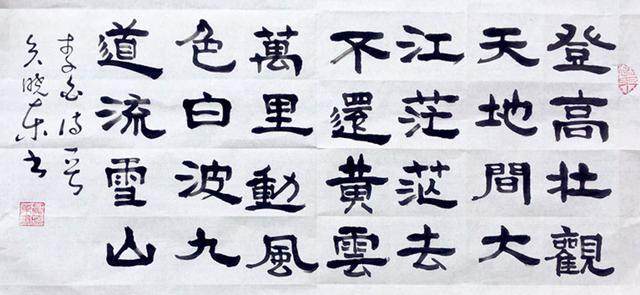 登高壯觀
天地間大
江茫茫去
不還黃雲
萬里動風
色白波九
道流雪山
李白诗一首
吴晓东书